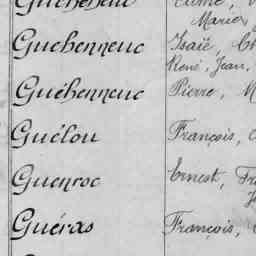 Marie,
Guehenneuc Isaïe,
René, Jean,
Guéhenneuc Pierre,
Guélou François,
Guenroc Ernest,
Guéras François,